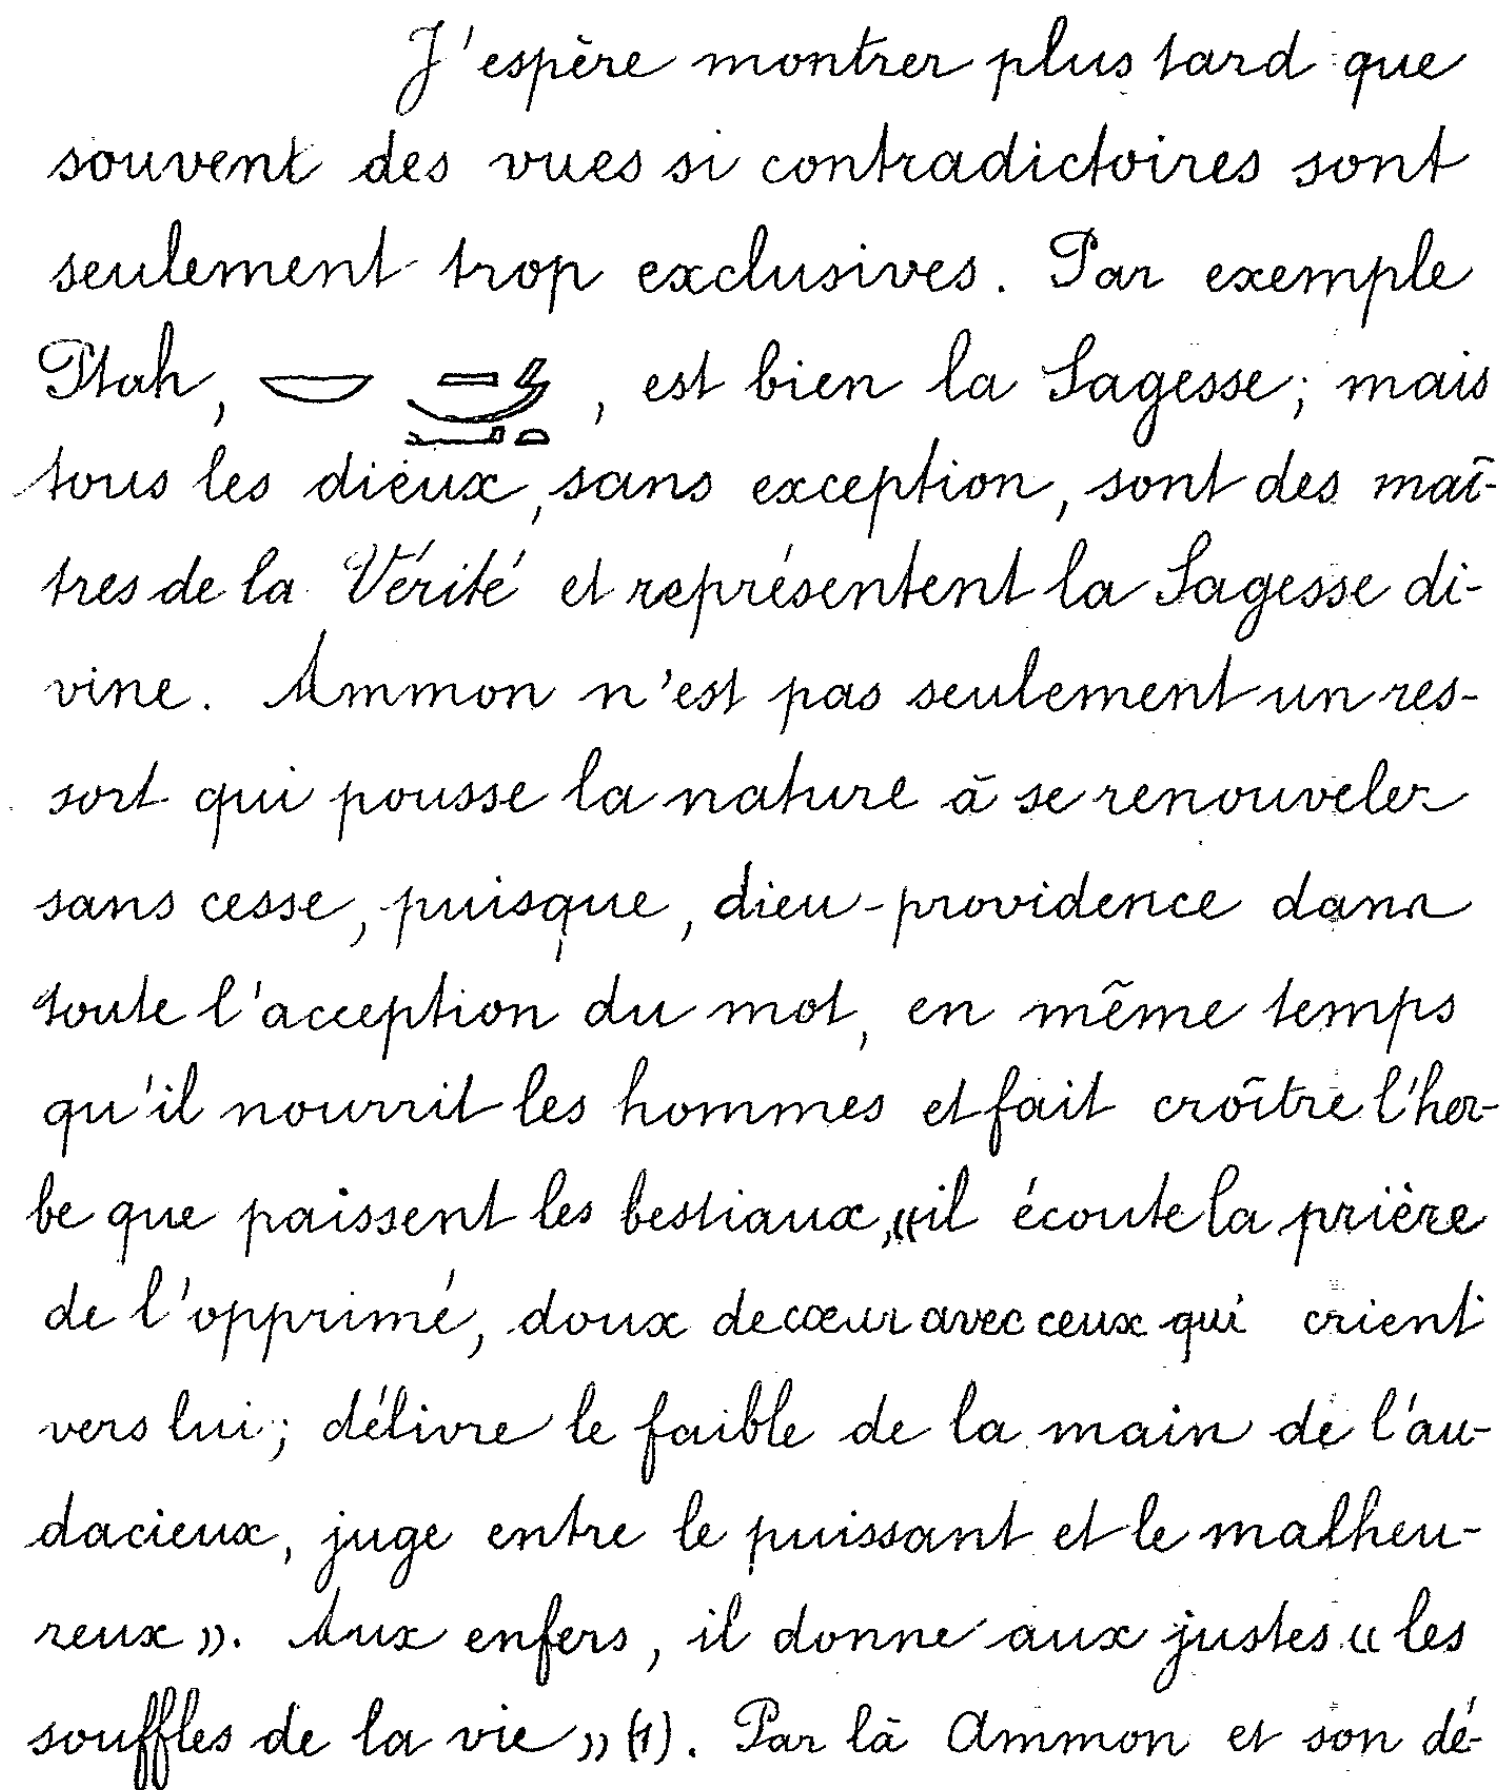 J'espère montrer plus tard que
souvent des vues si contradictoires sont
seulement trop exclusives. Par exemple
Ptah, 𓎟 𓐙𓌳𓂝𓏏, est bien la Sagesse; mais
tous les dieux, sans exception, sont des maî-
tres de la Vérité et représentent la Sagesse di-
vine. Ammon n'est pas seulement un res-
sort qui pousse la nature à se renouveler
sans cesse, puisque, dieu-providence dans
toute l'acception du mot, en même temps
qu'il nourrit les hommes et fait croître l'her-
be que paissent les bestiaux, «il écoute la prière
de l'opprimé, doux de cœur avec ceux qui crient
vers lui; délivre le faible de la main de l'au-
dacieux, juge entre le puissant et le malheu-
reux». Aux enfers, il donne aux justes «les
souffles de la vie» (1). Par là Ammon et son dé-